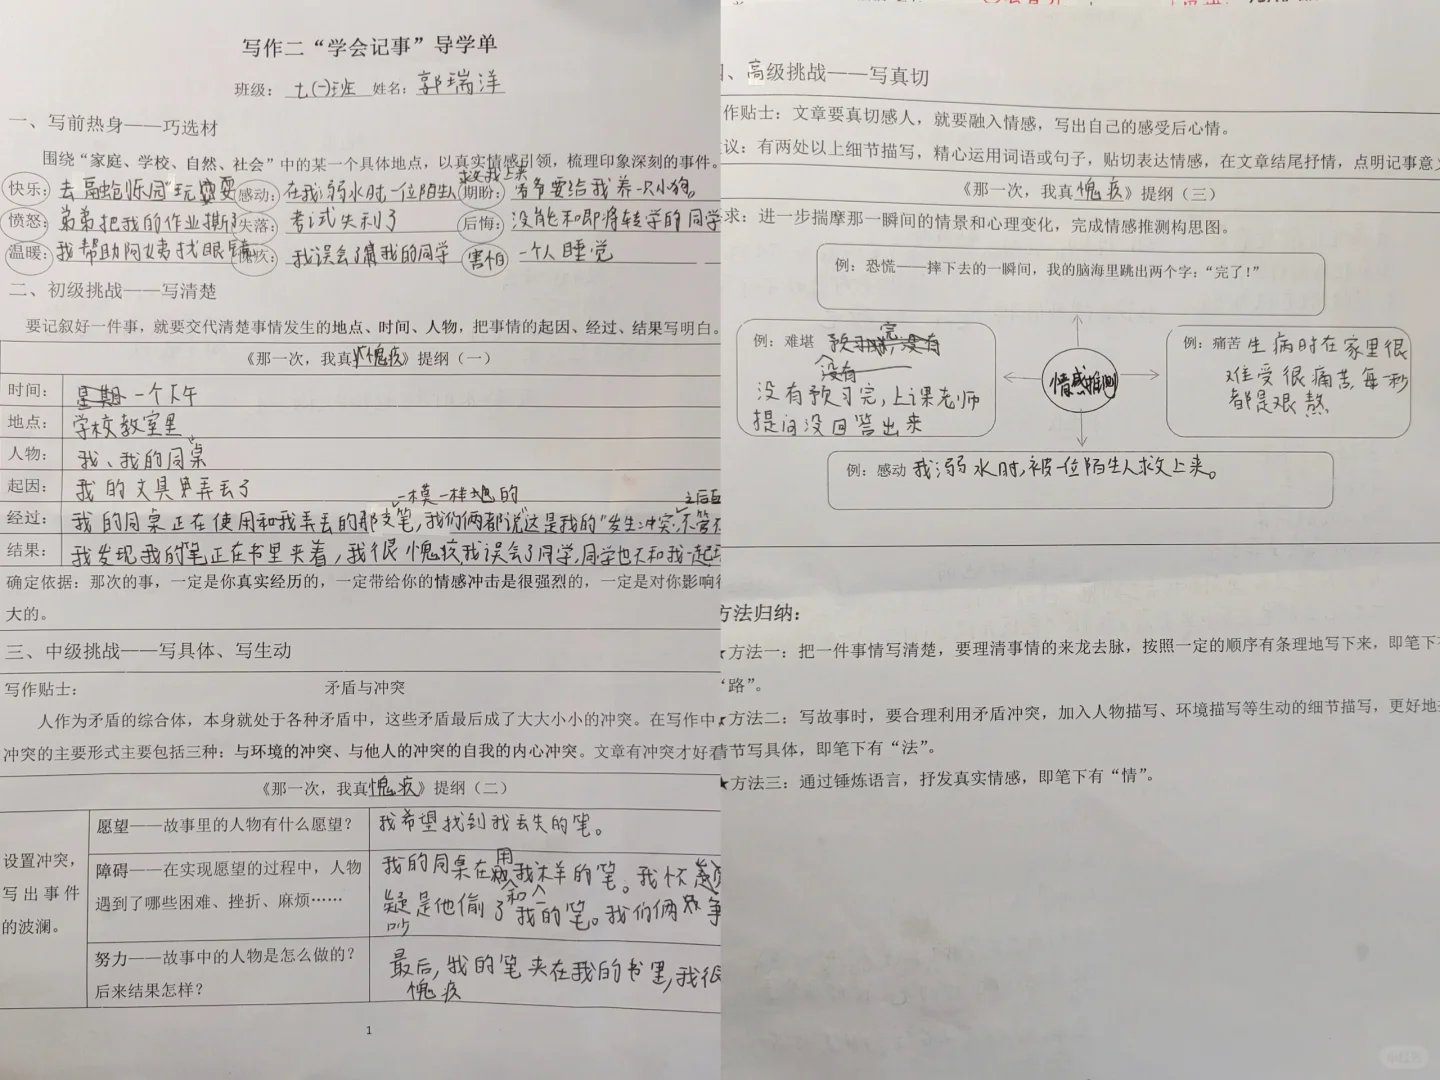 写作二“学会记事”导学单
班级：七(一)班 姓名：郭瑞洋
一、写前热身——巧选材
围绕“家庭、学校、自然、社会”中的某一个具体地点，以真实情感引领，梳理印象深刻的事件。
快乐： 去 乐园玩耍 感动： 在我溺水时一位陌生人救我上来 期盼： 爸爸要给我养一只小狗。
愤怒： 弟弟把我的作业撕了 失落： 考试失利了 后悔： 没能和即将转学的同学
温暖： 我帮助阿姨找眼镜 愧疚： 我误会了我的同学 害怕 一个人睡觉
二、初级挑战——写清楚
要记叙好一件事，就要交代清楚事情发生的地点、时间、人物，把事情的起因、经过、结果写明白。
《那一次，我真愧疚》提纲（一）
时间： 一个下午
地点： 学校教室里
人物： 我、我的同桌
起因： 我的文具弄丢了
经过： 我的同桌正在使用和我弄丢的那支一模一样地的笔，我们俩都说“这是我的”发生冲突，之后
结果： 我发现我的笔正在书里夹着，我很愧疚我误会了同学，同学也不和我一起
确定依据：那次的事，一定是你真实经历的，一定带给你的情感冲击是很强烈的，一定是对你影响很
大的。
三、中级挑战——写具体、写生动
写作贴士： 矛盾与冲突
人作为矛盾的综合体，本身就处于各种矛盾中，这些矛盾最后成了大大小小的冲突。在写作中，
冲突的主要形式主要包括三种：与环境的冲突、与他人的冲突的自我的内心冲突。文章有冲突才好看
《那一次，我真愧疚》提纲（二）
设置冲突，
写出事件
的波澜。
愿望——故事里的人物有什么愿望？
我希望找到我丢失的笔。
障碍——在实现愿望的过程中，人物
遇到了哪些困难、挫折、麻烦……
我的同桌在用和我一样的笔。我怀
疑是他偷了我的笔。我们俩争
吵
努力——故事中的人物是怎么做的？
后来结果怎样？
最后，我的笔夹在我的书里，我很
愧疚
1
四、高级挑战——写真切
作贴士：文章要真切感人，就要融入情感，写出自己的感受后心情。
议：有两处以上细节描写，精心运用词语或句子，贴切表达情感，在文章结尾抒情，点明记事意义
《那一次，我真愧疚》提纲（三）
求：进一步揣摩那一瞬间的情景和心理变化，完成情感推测构思图。
例：恐慌——摔下去的一瞬间，我的脑海里跳出两个字：“完了！”
例：难堪
没有预习完，上课老师
提问没回答出来
情感推测
例：痛苦 生病时在家里很
难受很痛苦，每一秒
都是艰熬
例：感动 我溺水时，被一位陌生人救上来。
方法归纳：
★方法一：把一件事情写清楚，要理清事情的来龙去脉，按照一定的顺序有条理地写下来，即笔下有
“路”。
★方法二：写故事时，要合理利用矛盾冲突，加入人物描写、环境描写等生动的细节描写，更好地把
情节写具体，即笔下有“法”。
★方法三：通过锤炼语言，抒发真实情感，即笔下有“情”。
小红书